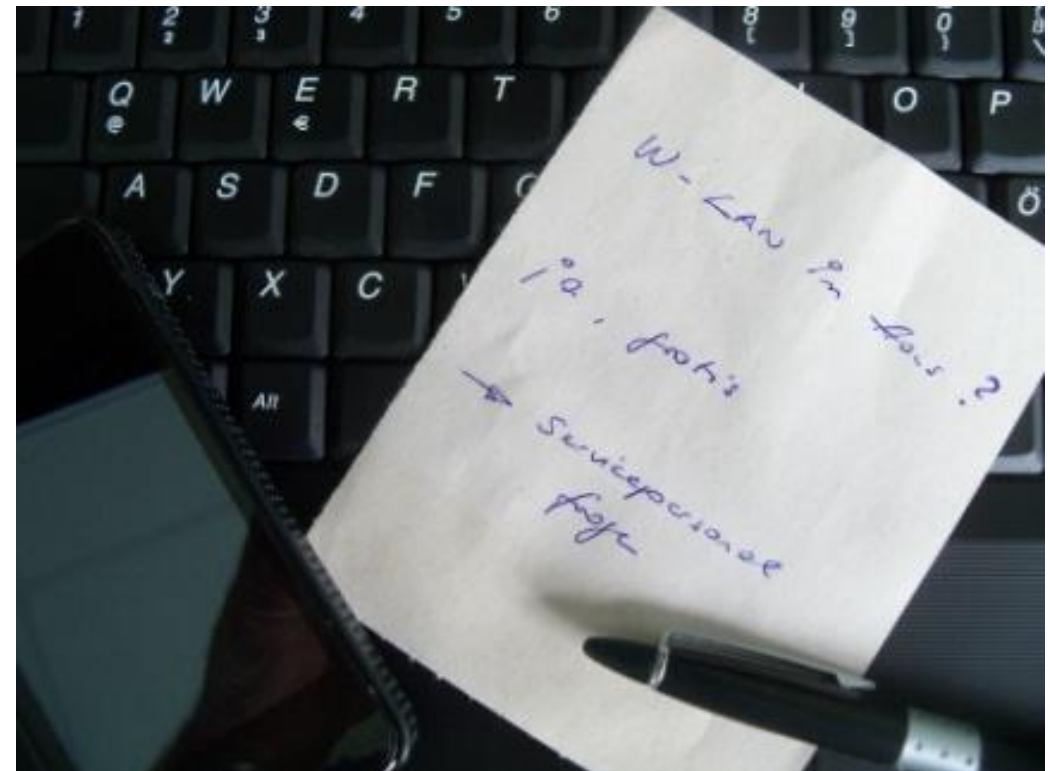 1 2 3 4 5 6 8 9 0
² ³ [ ] }
Q W E R T O P
@ €
A S D F Ö
Y X C
Alt
W-LAN im Haus?
ja, gratis
→ Servicepersonal
frage